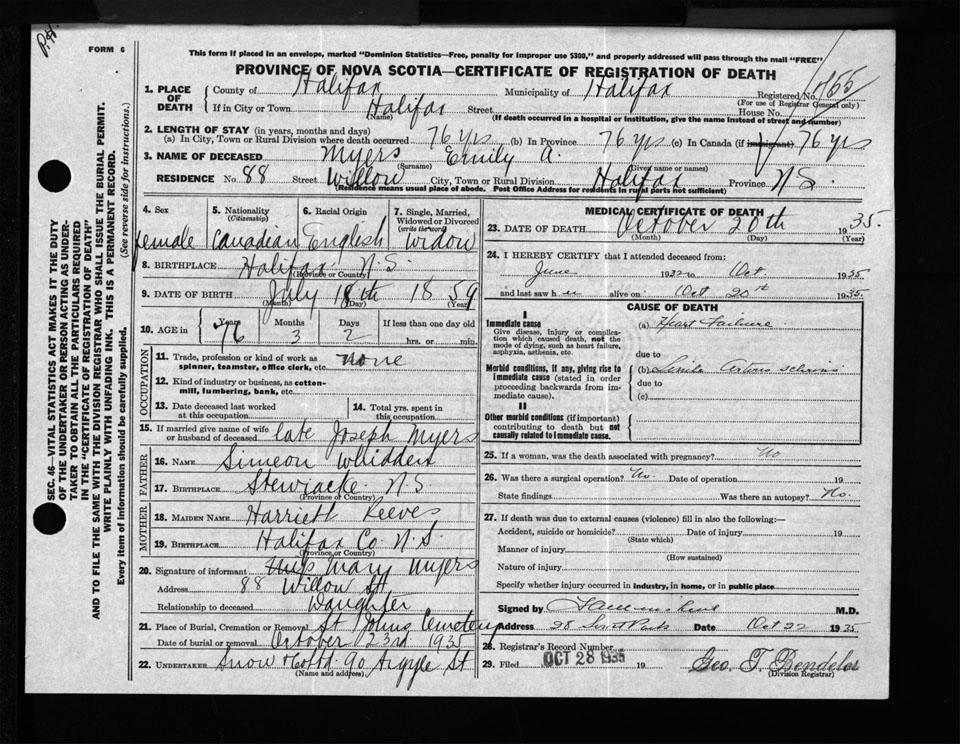 FORM 6
This form if placed in an envelope, marked "Dominion Statistics—Free, penalty for improper use $300," and properly addressed will pass through the mail "FREE"
PROVINCE OF NOVA SCOTIA—CERTIFICATE OF REGISTRATION OF DEATH
SEC. 46—VITAL STATISTICS ACT MAKES IT THE DUTY
OF THE UNDERTAKER OR PERSON ACTING AS UNDER-
TAKER TO OBTAIN ALL THE PARTICULARS REQUIRED
IN THE "CERTIFICATE OF REGISTRATION OF DEATH"
AND TO FILE THE SAME WITH THE DIVISION REGISTRAR WHO SHALL ISSUE THE BURIAL PERMIT.
WRITE PLAINLY WITH UNFADING INK. THIS IS A PERMANENT RECORD.
Every item of information should be carefully supplied. (See reverse side for instructions.)
1. PLACE OF DEATH County of Halifax Municipality of Halifax Registered No.
(For use of Registrar General only)
If in City or Town Halifax Street House No.
(Name) (If death occurred in a hospital or institution, give the name instead of street and number)
2. LENGTH OF STAY (in years, months and days)
(a) In City, Town or Rural Division where death occurred 76 yrs (b) In Province 76 yrs (c) In Canada (if immigrant) 76 yrs
3. NAME OF DECEASED Myers Emily A.
(Surname) (Given name or names)
RESIDENCE No. 88 Street Willow City, Town or Rural Division Halifax Province N.S.
(Residence means usual place of abode. Post Office Address for residents in rural parts not sufficient)
4. Sex 5. Nationality (Citizenship) 6. Racial Origin 7. Single, Married, Widowed or Divorced (write the word)
female Canadian English Widow
8. BIRTHPLACE Halifax N.S.
(Province or Country)
9. DATE OF BIRTH July 18th 1859
(Month) (Day) (Year)
10. AGE in Years Months Days If less than one day old
76 3 2 hrs. or min.
OCCUPATION
11. Trade, profession or kind of work as spinner, teamster, office clerk, etc. none
12. Kind of industry or business, as cotton-mill, lumbering, bank, etc.
13. Date deceased last worked at this occupation
14. Total yrs. spent in this occupation
15. If married give name of wife or husband of deceased late Joseph Myers
FATHER
16. NAME Simeon Whidden
17. BIRTHPLACE Stewiacke N.S.
(Province or Country)
MOTHER
18. MAIDEN NAME Harriett Reeves
19. BIRTHPLACE Halifax Co. N.S.
(Province or Country)
20. Signature of informant Mary Myers
Address 88 Willow St
Relationship to deceased Daughter
21. Place of Burial, Cremation or Removal St Johns Cemetery
Date of burial or removal October 23rd 1935
22. UNDERTAKER Snow & Co Ltd. 90 Argyle St
(Name and address)
MEDICAL CERTIFICATE OF DEATH
23. DATE OF DEATH October 20th 1935.
(Month) (Day) (Year)
24. I HEREBY CERTIFY that I attended deceased from:
June 1932 to Oct 1935
and last saw h er alive on Oct 20th 1935.
CAUSE OF DEATH
I
Immediate cause
Give disease, injury or complication which caused death, not the mode of dying, such as heart failure, asphyxia, asthenia, etc.
(a) Heart Failure
due to
Morbid conditions, if any, giving rise to immediate cause (stated in order proceeding backwards from immediate cause).
(b) Senile Arterio sclerosis
due to
(c)
II
Other morbid conditions (if important) contributing to death but not causally related to immediate cause.
25. If a woman, was the death associated with pregnancy? No
26. Was there a surgical operation? No. Date of operation 19
State findings Was there an autopsy? No.
27. If death was due to external causes (violence) fill in also the following:—
Accident, suicide or homicide? Date of injury 19
(State which)
Manner of injury
(How sustained)
Nature of injury
Specify whether injury occurred in industry, in home, or in public place
Signed by M.D.
Address 28 Date Oct 22 1935
28. Registrar's Record Number
29. Filed OCT 28 1935 19 Geo. T. Bendeler
(Division Registrar)